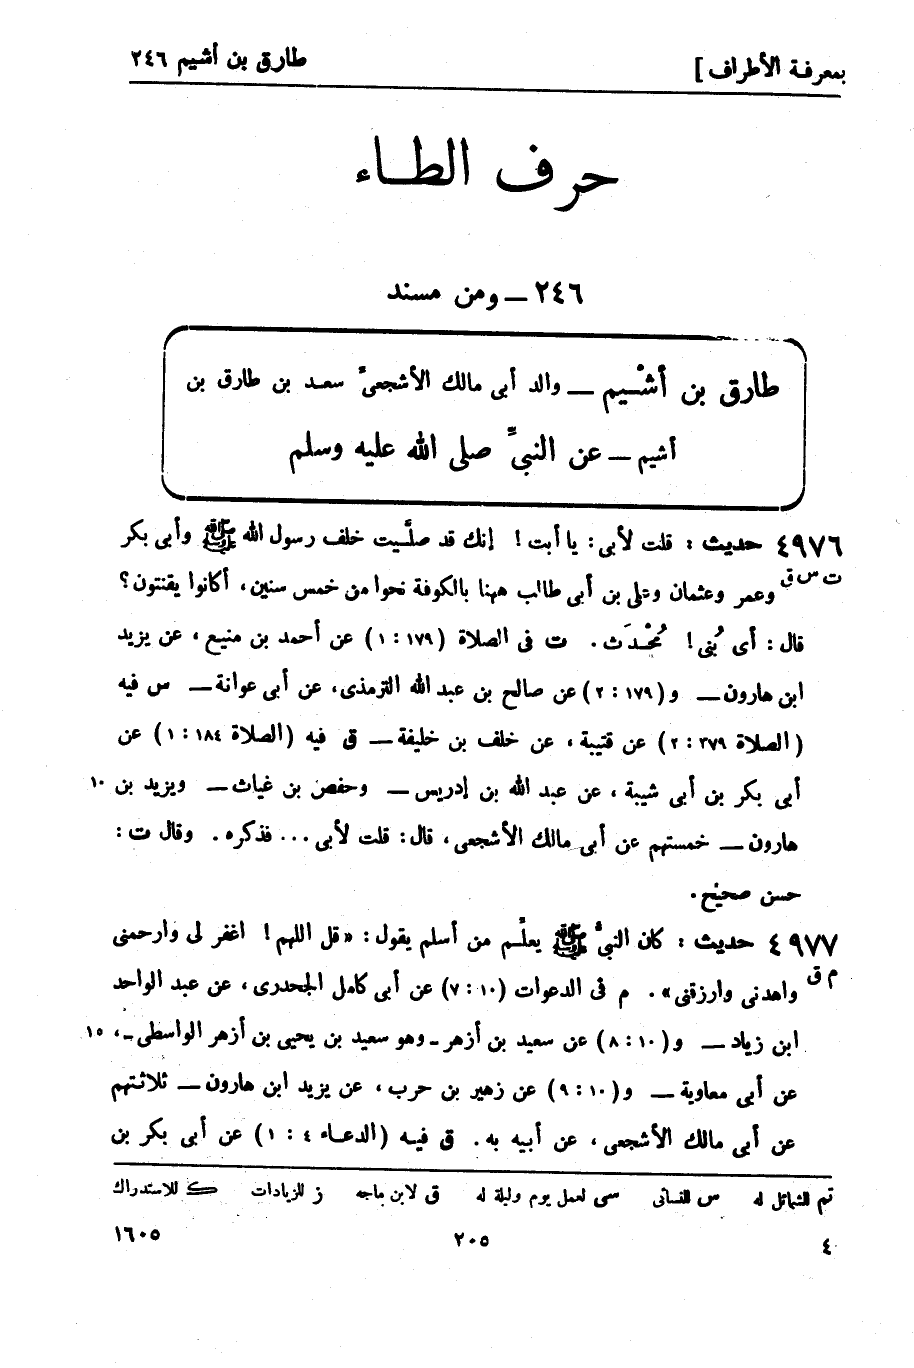 بمعرفة الأطراف ]
طارق بن أشيم ٢٤٦
حرف الطاء
٢٤٦ ــ ومن مسند
طارق بن أشْيم ــ والد أبى مالك الأشجعىّ سعد بن طارق بن
أشيم ــ عن النبىّ صلى الله عليه وسلم
٤٩٧٦ حديث : قلت لأبى : يا أبت ! إنك قد صلّيت خلف رسول الله ﷺ وأبى بكر
ت س ق وعمر وعثمان وعلى بن أبى طالب ههنا بالكوفة نحوا من خمس سنين، أكانوا يقنتون؟
قال : أى بُنى ! مُحْدَث . ت فى الصلاة (١٧٩ : ١) عن أحمد بن منيع ، عن يزيد
ابن هارون ــ و(١٧٩ : ٢) عن صالح بن عبد الله الترمذى، عن أبى عوانة ــ س فيه
(الصلاة ٣٧٩ : ٢) عن قتيبة ، عن خلف بن خليفة ــ ق فيه (الصلاة ١٨٤ : ١) عن
أبى بكر بن أبى شيبة ، عن عبد الله بن إدريس ــ وحفص بن غياث ــ ويزيد بن ١٠
هارون ــ خمستهم عن أبى مالك الأشجعى ، قال : قلت لأبى ... فذكره . وقال ت :
حسن صحيح .
٤٩٧٧ حديث : كان النبىّ ﷺ يعلّم من أسلم يقول : «قل اللهم ! اغفر لى وارحمنى
م ق واهدنى وارزقنى» . م فى الدعوات (١٠ : ٧) عن أبى كامل الجحدرى، عن عبد الواحد
ابن زياد ــ و(١٠ : ٨) عن سعيد بن أزهر ـ وهو سعيد بن يحيى بن أزهر الواسطى ـ ، ١٥
عن أبى معاوية ــ و(١٠ : ٩) عن زهير بن حرب ، عن يزيد ابن هارون ــ ثلاثتهم
عن أبى مالك الأشجعى ، عن أبيه به . ق فيه (الدعاء ٤ : ١) عن أبى بكر بن
تم للشمائل له س للنسائى سى لعمل يوم وليلة له ق لابن ماجه ز للزيادات ك للاستدراك
٤ ٢٠٥ ١٦٠٥